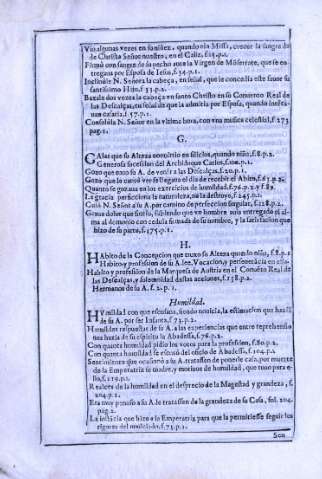 Vio algunas vezes en su niñez, quando la Missa, crecer la sangre de
de Christo Señor nuestro, en el Caliz. f.13.p.2.
Firmó con sangre de su pecho ante la Virgen de Monserrate, que se entregaua por
Esposa de Iesus, f.34.p.1.
Inclinóle N. Señora la cabeça, en señal, que la concedia este fauor su
santissimo Hijo, f.33.p.2.
Baxóle dos vezes la cabeça vn santo Christo en su Conuento Real de
las Descalças, en señal de que la admitia por Esposa, quando
f.57.p.1.
Consolóla N. Señor en la vltima hora, con vna musica celestial, f.273
pag.1.
G.
Galas que su Alteza conuirtio en silicios, quando niña, f.8.p.2.
Generosa sucession del Archiduque Carlos, f.
Gozo que tuuo su A. de venir a las Descalças, f.20.p.1.
Gozo que le causó ver se llegaua el dia de recebir el Abito, f.
Quanto se gozaua en los exercicios de humildad, f.76.p.2. y f.89.
La gracia perfecciona la naturaleza, no la destruye, f.245.p.2.
Guió N. Señor a su A. por camino de perfeccion singular, f.128.p.2.
Graue dolor que sintio, sabiendo que vn hombre auia entregado el alma
al demonio con cedula firmada de su nombre, y la satisfacion que
hizo de su parte, f.175.p.1.
H.
Habito de la Concepcion que truxo su Alteza quando niña, f.8.p.1
Habito y profession de su Alteza. Vocacion, y perseuerancia en ella
Habito y profession de la Marquesa de Austria en el Conuento Real de
las Descalças, y solemnidad destas acciones, f.138.p.2.
Hermanos de su A. f.2.p.1.
Humildad.
Humildad con que escusaua, siendo nouicia, la estimacion que hazian
de su A. por ser Infanta, f.73.p.2.
Humildes respuestas de su A. a las experiencias con que reprehendio
de su espiritu la Abadessa, f.76.p.2.
Con quanta humildad pidio los votos para la profession, f.80.p.2.
Con quanta humildad se escusó del oficio de Abadessa, f.104.p.2
Sentimiento que ocasionó a su A. tratassen de ponerle casa por muerte
de la Emperatriz su madre, y motiuos de humildad, que tuuo para ello,
f.110.p.1.
Realces de la humildad en el desprecio de la Magestad y grandeza, f.
204.p.1.
Era muy penoso a su A. le tratassen de la grandeza de su Casa, fol. 204.
pag.2.
La instancia que hizo a la Emperatriz para que la permitiesse seguir los
rigores del nouiciado, f.73.p.1.
Son